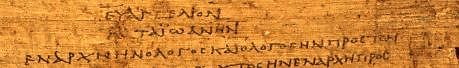 ΕΥΑΓΓΕΛΙΟΝ
ΤΑΪΩΑΝΗΝ
ΕΝΑΡΧΗΗΝΟΛΟΓΟϹΚΑΙΟΛΟΓΟϹΗΝΠΡΟϹΤΟΝ
ΤΟϹΗΝΕΝΑΡΧΗΠΡΟϹ